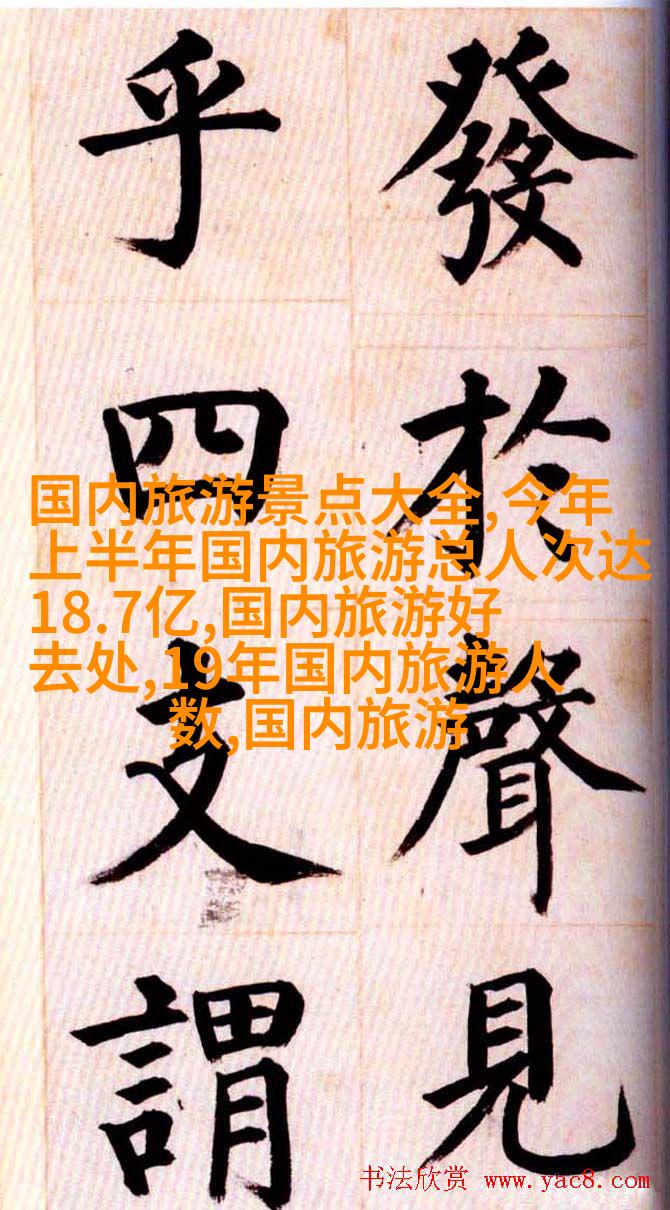 發於聲見
乎四支謂
国内旅游景点大全,今年
上半年国内旅游总人次达
18.7亿,国内旅游好
去处,19年国内旅游人
数,国内旅游
书法欣赏 www.yac8.com